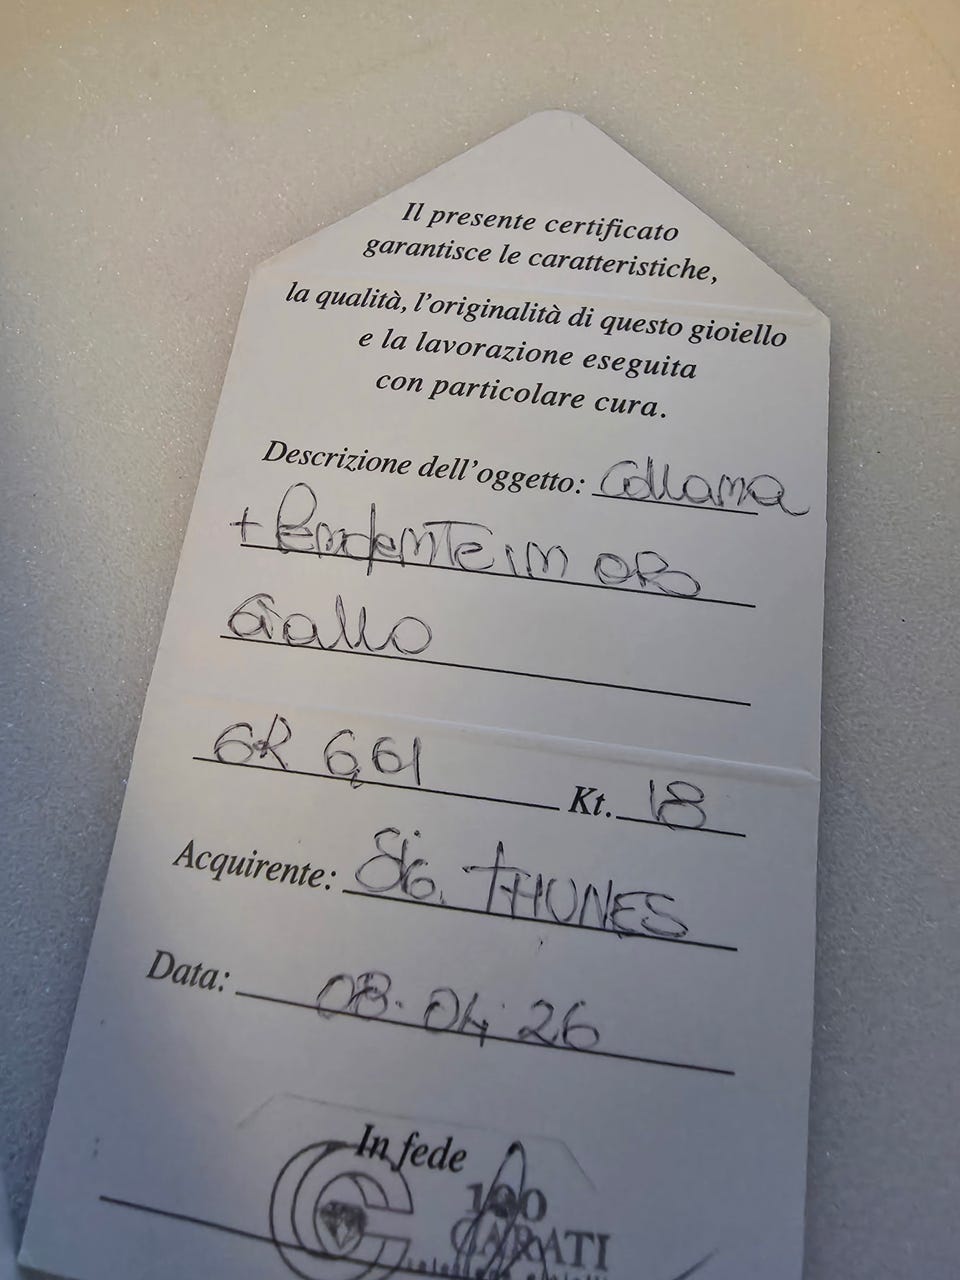 Il presente certificato
garantisce le caratteristiche,
la qualità, l'originalità di questo gioiello
e la lavorazione eseguita
con particolare cura.
Descrizione dell'oggetto: Collana
+ Pendente in oro
Giallo
GR 6,61 Kt. 18
Acquirente: Sig. THUNES
Data: 08.04.26
In fede
100
CARATI